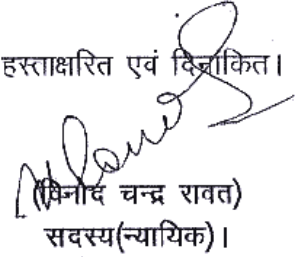 हस्ताक्षरित एवं दिनांकित।
(विनोद चन्द्र रावत)
सदस्य(न्यायिक)।